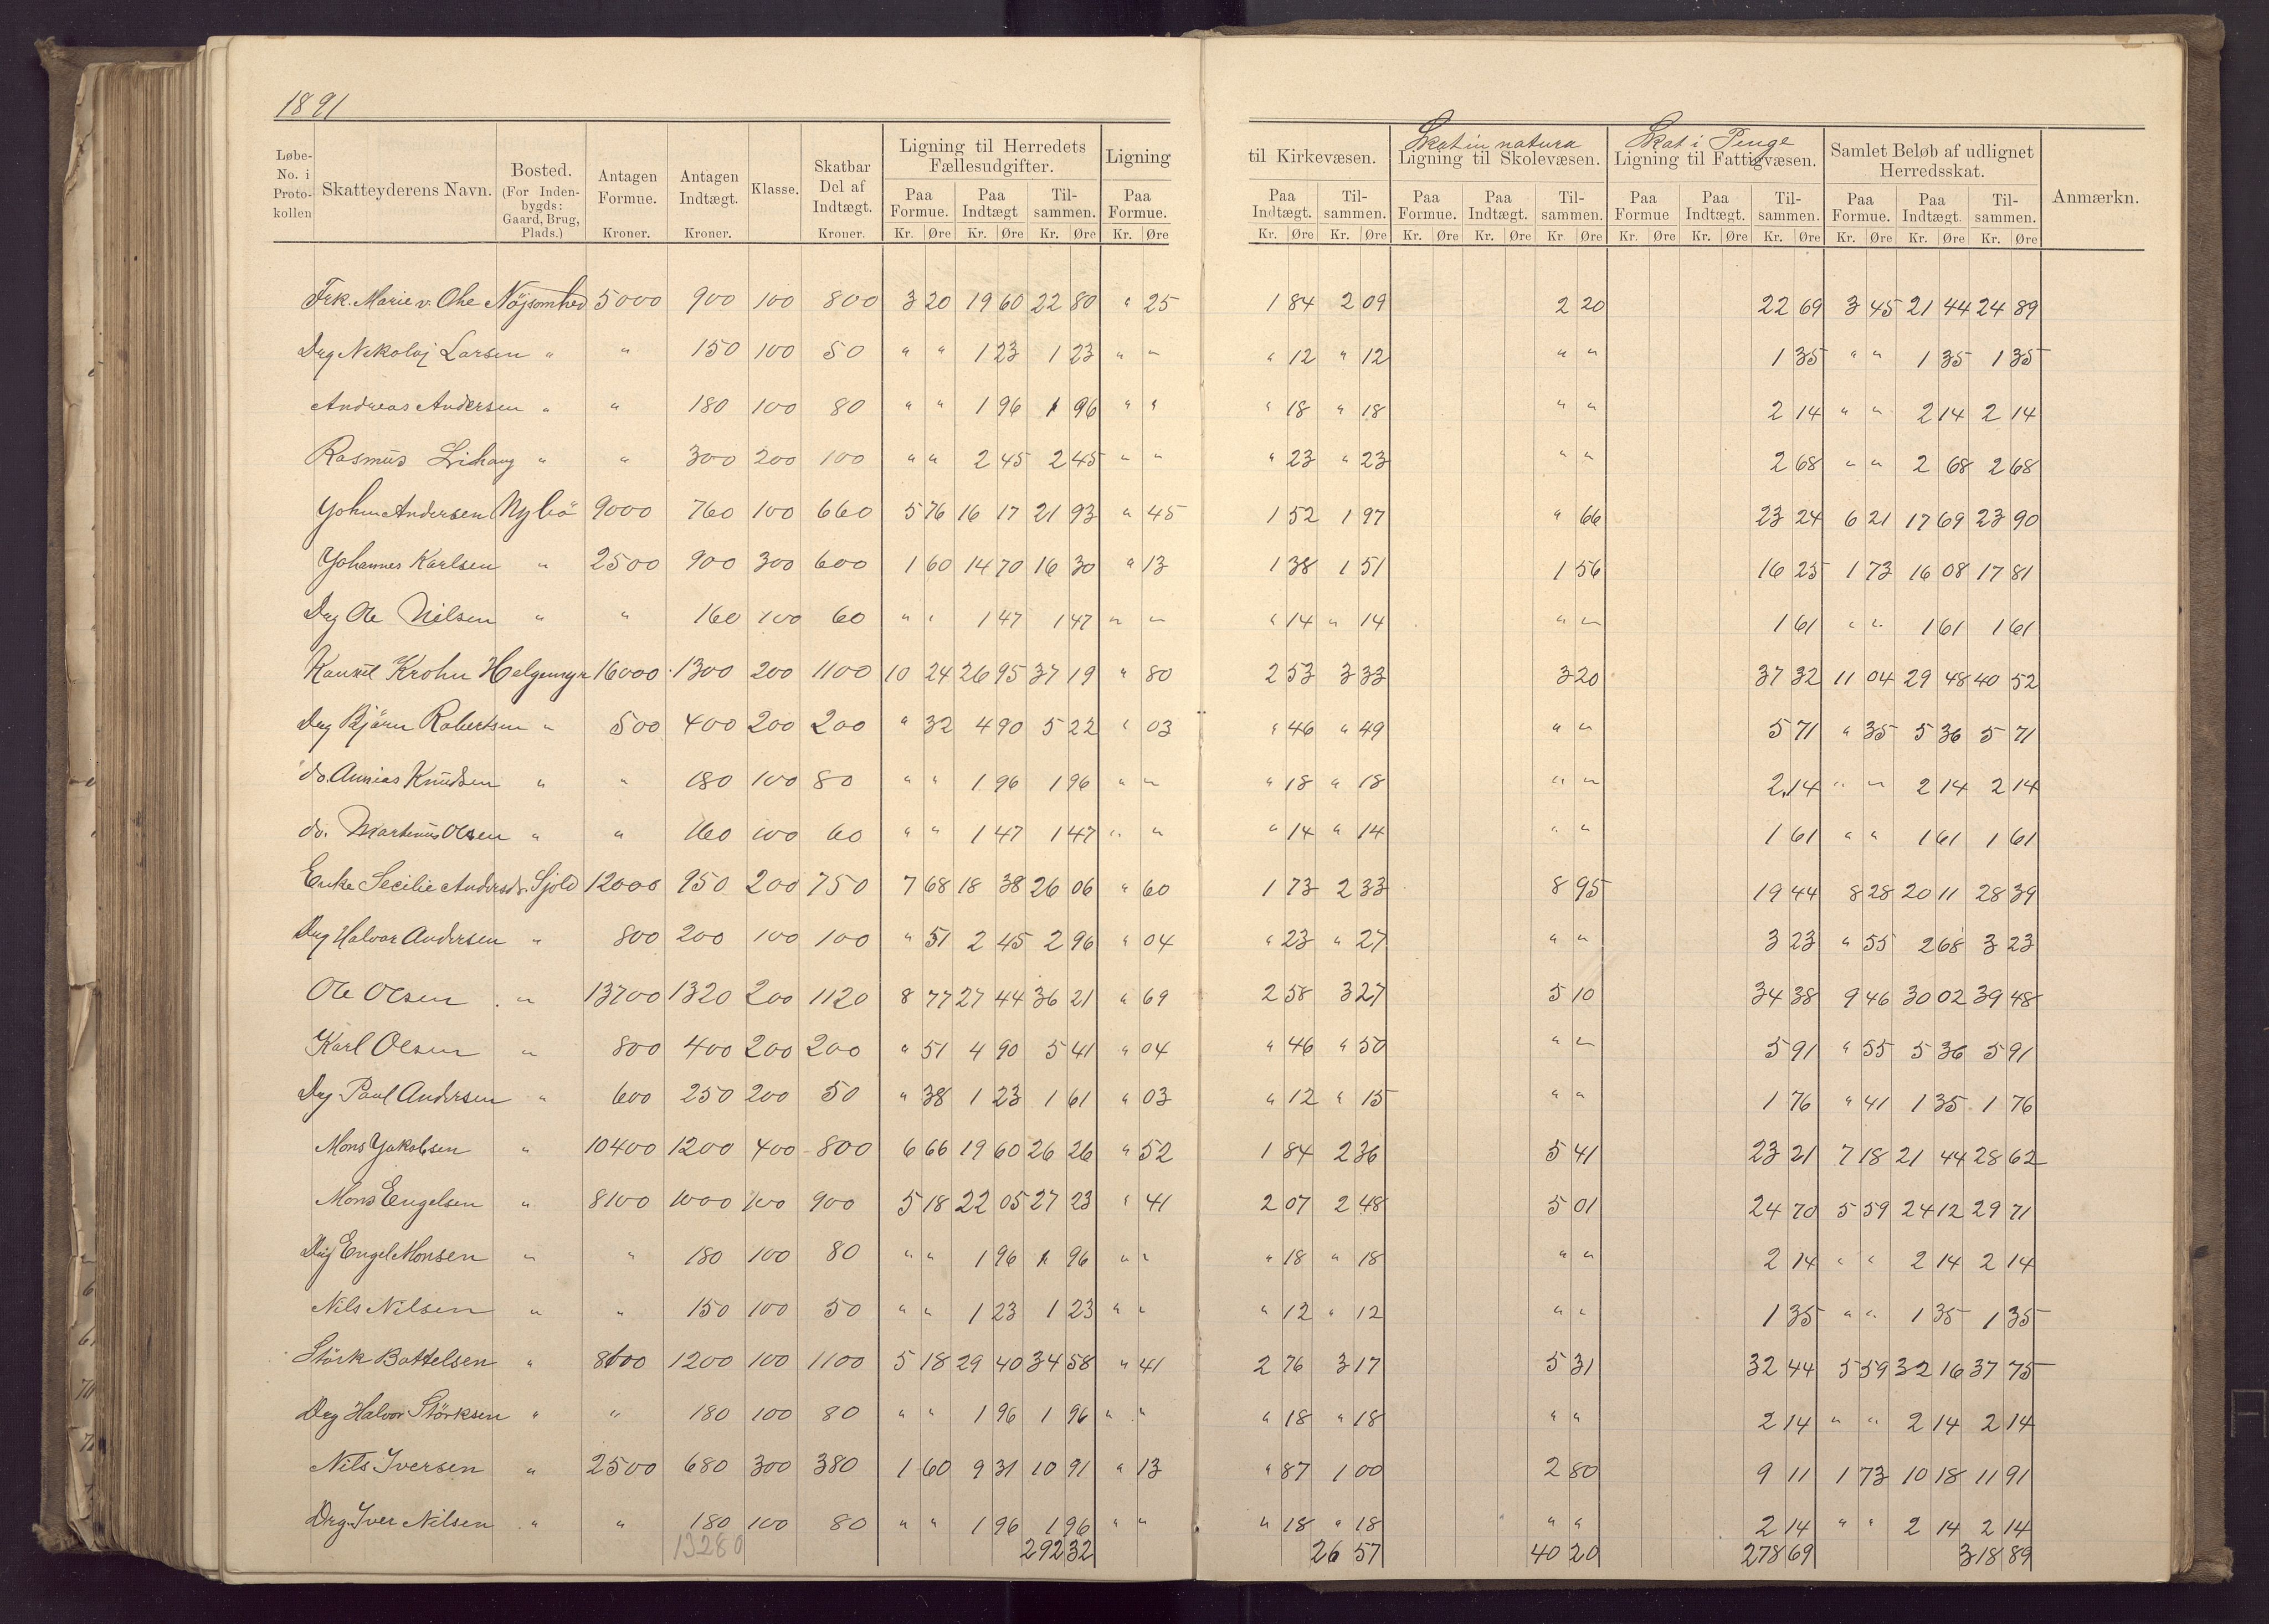 1891
Løbe-No. i Proto-kollen | Skatteyderens Navn. | Bosted. (For Inden-bygds: Gaard, Brug, Plads.) | Antagen Formue. Kroner. | Antagen Indtægt. Kroner. | Klasse. | Skatbar Del af Indtægt. Kroner. | Ligning til Herredets Fællesudgifter. Paa Formue. Kr. Øre | Paa Indtægt Kr. Øre | Til-sammen. Kr. Øre | Ligning Paa Formue. Kr. Øre | til Kirkevæsen. Paa Indtægt. Kr. Øre | Til-sammen. Kr. Øre | Skat in natura Ligning til Skolevæsen. Paa Formue. Kr. Øre | Paa Indtægt. Kr. Øre | Til-sammen. Kr Øre | Skat i Penge Ligning til Fattigvæsen. Paa Formue Kr. Øre | Paa Indtægt. Kr. Øre | Til-sammen. Kr. Øre | Samlet Beløb af udlignet Herredsskat. Paa Formue. Kr. Øre | Paa Indtægt. Kr. Øre | Til-sammen. Kr. Øre | Anmærkn.
Frk. Marie v. Ohe Nöjsomhed 5000 900 100 800 3 20 19 60 22 80 " 25 1 84 2 09 2 20 22 69 3 45 21 44 24 89
Drg Nikolaj Larsen " " 150 100 50 " " 1 23 1 23 " " " 12 " 12 " " 1 35 " " 1 35 1 35
Andreas Andersen " " 180 100 80 " " 1 96 1 96 " " " 18 " 18 " " 2 14 " " 2 14 2 14
Rasmus Lihaug " " 300 200 100 " " 2 45 2 45 " " " 23 " 23 " " 2 68 " " 2 68 2 68
Andersen Nybö 9000 760 100 660 5 76 16 17 21 93 " 45 1 52 1 97 " 66 23 24 6 21 17 69 23 90
Yohannes Karlsen " 2500 900 300 600 1 60 14 70 16 30 " 13 1 38 1 51 1 56 16 25 1 73 16 08 17 81
Drg Ole Nilsen " " 160 100 60 " " 1 47 1 47 " " " 14 " 14 " " 1 61 " " 1 61 1 61
Krohn Helgemyr 16000 1300 200 1100 10 24 26 95 37 19 " 80 2 53 3 33 3 20 37 32 11 04 29 48 40 52
Drg Björn Robertsen " 500 400 200 200 " 32 4 90 5 22 " 03 " 46 " 49 " " 5 71 " 35 5 36 5 71
do. Knudsen " " 180 100 80 " " 1 96 1 96 " " " 18 " 18 " " 2 14 " " 2 14 2 14
do. Martinus Olsen " " 160 100 60 " " 1 47 1 47 " " " 14 " 14 " " 1 61 " " 1 61 1 61
Enke Secilie Andersdr. Sjold 12000 950 200 750 7 68 18 38 26 06 " 60 1 73 2 33 8 95 19 44 8 28 20 11 28 39
Drg Halvor Andersen " 800 200 100 100 " 51 2 45 2 96 " 04 " 23 " 27 " " 3 23 " 55 2 68 3 23
Ole Olsen " 13700 1320 200 1120 8 77 27 44 36 21 " 69 2 58 3 27 5 10 34 38 9 46 30 02 39 48
Karl Olsen " 800 400 200 200 " 51 4 90 5 41 " 04 " 46 " 50 " " 5 91 " 55 5 36 5 91
Drg Paul Andersen " 600 250 200 50 " 38 1 23 1 61 " 03 " 12 " 15 " " 1 76 " 41 1 35 1 76
Mons Yakobsen " 10400 1200 400 800 6 66 19 60 26 26 " 52 1 84 2 36 5 41 23 21 7 18 21 44 28 62
Mons Engelsen " 8100 1000 100 900 5 18 22 05 27 23 " 41 2 07 2 48 5 01 24 70 5 59 24 12 29 71
Drg Engel Monsen " " 180 100 80 " " 1 96 1 96 " " " 18 " 18 " " 2 14 " " 2 14 2 14
Nils Nilsen " " 150 100 50 " " 1 23 1 23 " " " 12 " 12 " " 1 35 " " 1 35 1 35
Störk Battelsen " 8100 1200 100 1100 5 18 29 40 34 58 " 41 2 76 3 17 5 31 32 44 5 59 32 16 37 75
Drg Halvor Störksen " " 180 100 80 " " 1 96 1 96 " " " 18 " 18 " " 2 14 " " 2 14 2 14
Nils Iversen " 2500 680 300 380 1 60 9 31 10 91 " 13 " 87 1 00 2 80 9 11 1 73 10 18 11 91
Drg Iver Nilsen " " 180 100 80 " " 1 96 1 96 " " " 18 " 18 " " 2 14 " " 2 14 2 14
13280 292 32 26 57 40 20 278 69 318 89